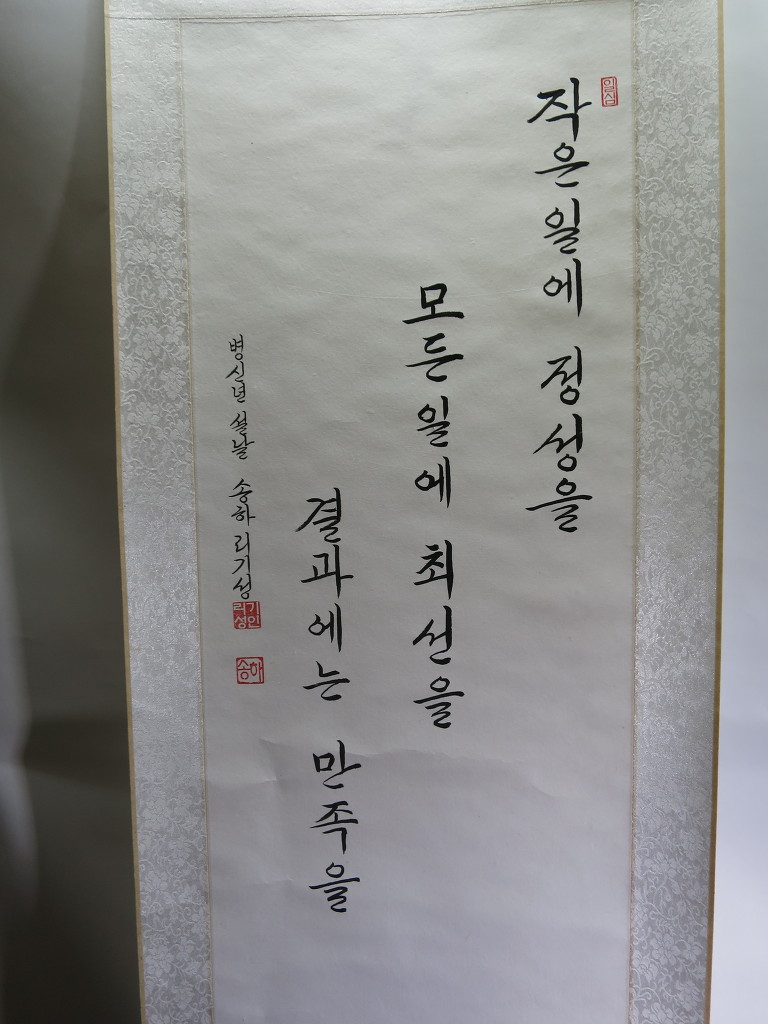 일심
작은일에 정성을
모든일에 최선을
결과에는 만족을
병신년 설날 송하 리기성
리기성인
송하